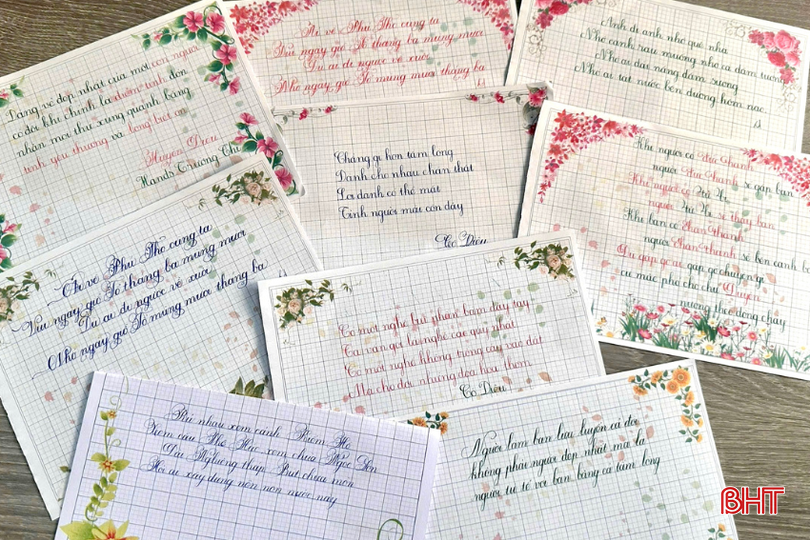 Dáng vẻ đẹp nhất của một con người
có đôi khi chính là đường tình đến
nhân mọi thứ xung quanh bằng
tình yêu thương và lòng biết ơn
Huyền Diệu
Hands Trương Thu
Ai về Phú Thọ cùng ta
Vui ngày giỗ Tổ tháng ba mùng mười
Dù ai đi ngược về xuôi
Nhớ ngày giỗ Tổ mùng mười tháng ba
Anh đi anh nhớ quê nhà
Nhớ canh rau muống nhớ cà dầm tương
Nhớ ai dãi nắng dầm sương
Nhớ ai tát nước bên đường hôm nao
Chẳng gì hơn tấm lòng
Dành cho nhau chân thật
Lợi danh có thể mất
Tình người mãi còn đây
Cô Diệu
Khi người có
sẽ gần bạn
Khi người có
sẽ thấy bạn
Khi bạn có Chân thành
người Chân thành sẽ bên cạnh b
Dù gặp gỡ ai, gặp gỡ chuyện gì
cứ mặc phó cho chữ Duyên
nương theo dòng chảy
Ai về Phú Thọ cùng ta
Vui ngày giỗ Tổ tháng ba mùng mười
Dù ai đi ngược về xuôi
Nhớ ngày giỗ Tổ mùng mười tháng ba
Có một nghề bụi phấn bám đầy tay
Ta vẫn gọi là nghề cao quý nhất
Có một nghề không trồng cây vào đất
Mà cho đời những đóa hoa thơm
Cô Diệu
Rủ nhau xem cảnh Kiếm Hồ
Xem cầu Thê Húc xem chùa Ngọc Sơn
Đài Nghiên tháp Bút chưa mòn
Hỏi ai xây dựng nên non nước này
Người làm bạn lưu luyến cả đời
không phải người đẹp nhất mà là
người tử tế với bạn bằng cả tấm lòng
BHT